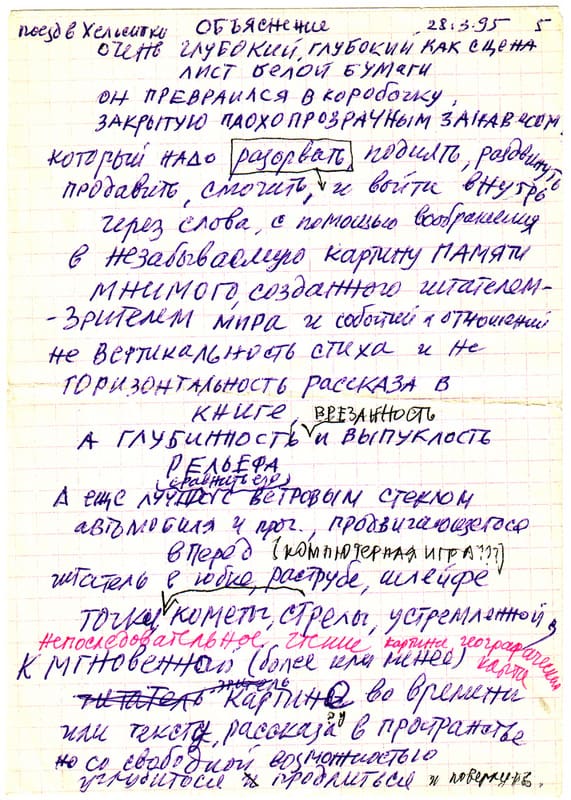 поезд в Хельсинки ОБЪЯСНЕНИЕ 28.3.95 5
ОЧЕНЬ ГЛУБОКИЙ, ГЛУБОКИЙ КАК СЦЕНА
ЛИСТ БЕЛОЙ БУМАГИ
ОН ПРЕВРАИЛСЯ В КОРОБОЧКУ,
ЗАКРЫТУЮ ПЛОХОПРОЗРАЧНЫМ ЗАНАВЕСОМ,
который надо разорвать, поднять, раздвинуть
продавить, смочить, и войти внутрь
через слова, с помощью воображения
в незабываемую картину ПАМЯТИ
МНИМОГО, созданного читателем-
-ЗРИТЕЛЕМ МИРА и событий и отношений
не ВЕРТИКАЛЬНОСТЬ СТИХА и не
ГОРИЗОНТАЛЬНОСТЬ РАССКАЗА В
КНИГЕ, ВРЕЗАННОСТЬ
А ГЛУБИННОСТЬ И ВЫПУКЛОСТЬ
РЕЛЬЕФА
А еще лучше (сравнить его) с ВЕТРОВЫМ СТЕКЛОМ
автомобиля и проч., продвигающегося
вперед (КОМПЬЮТЕРНАЯ ИГРА???)
читатель в юбке, раструбе, шлейфе
точки, кометы, стрелы, устремленной в
непоследовательное чтение картина географическая карта
К МГНОВЕННОЙ (более или менее)
читатель зритель КАРТИНЕ во времени
или тексту, рассказу в пространстве
но со свободной возможностью
углубиться и продлиться и повернуть.